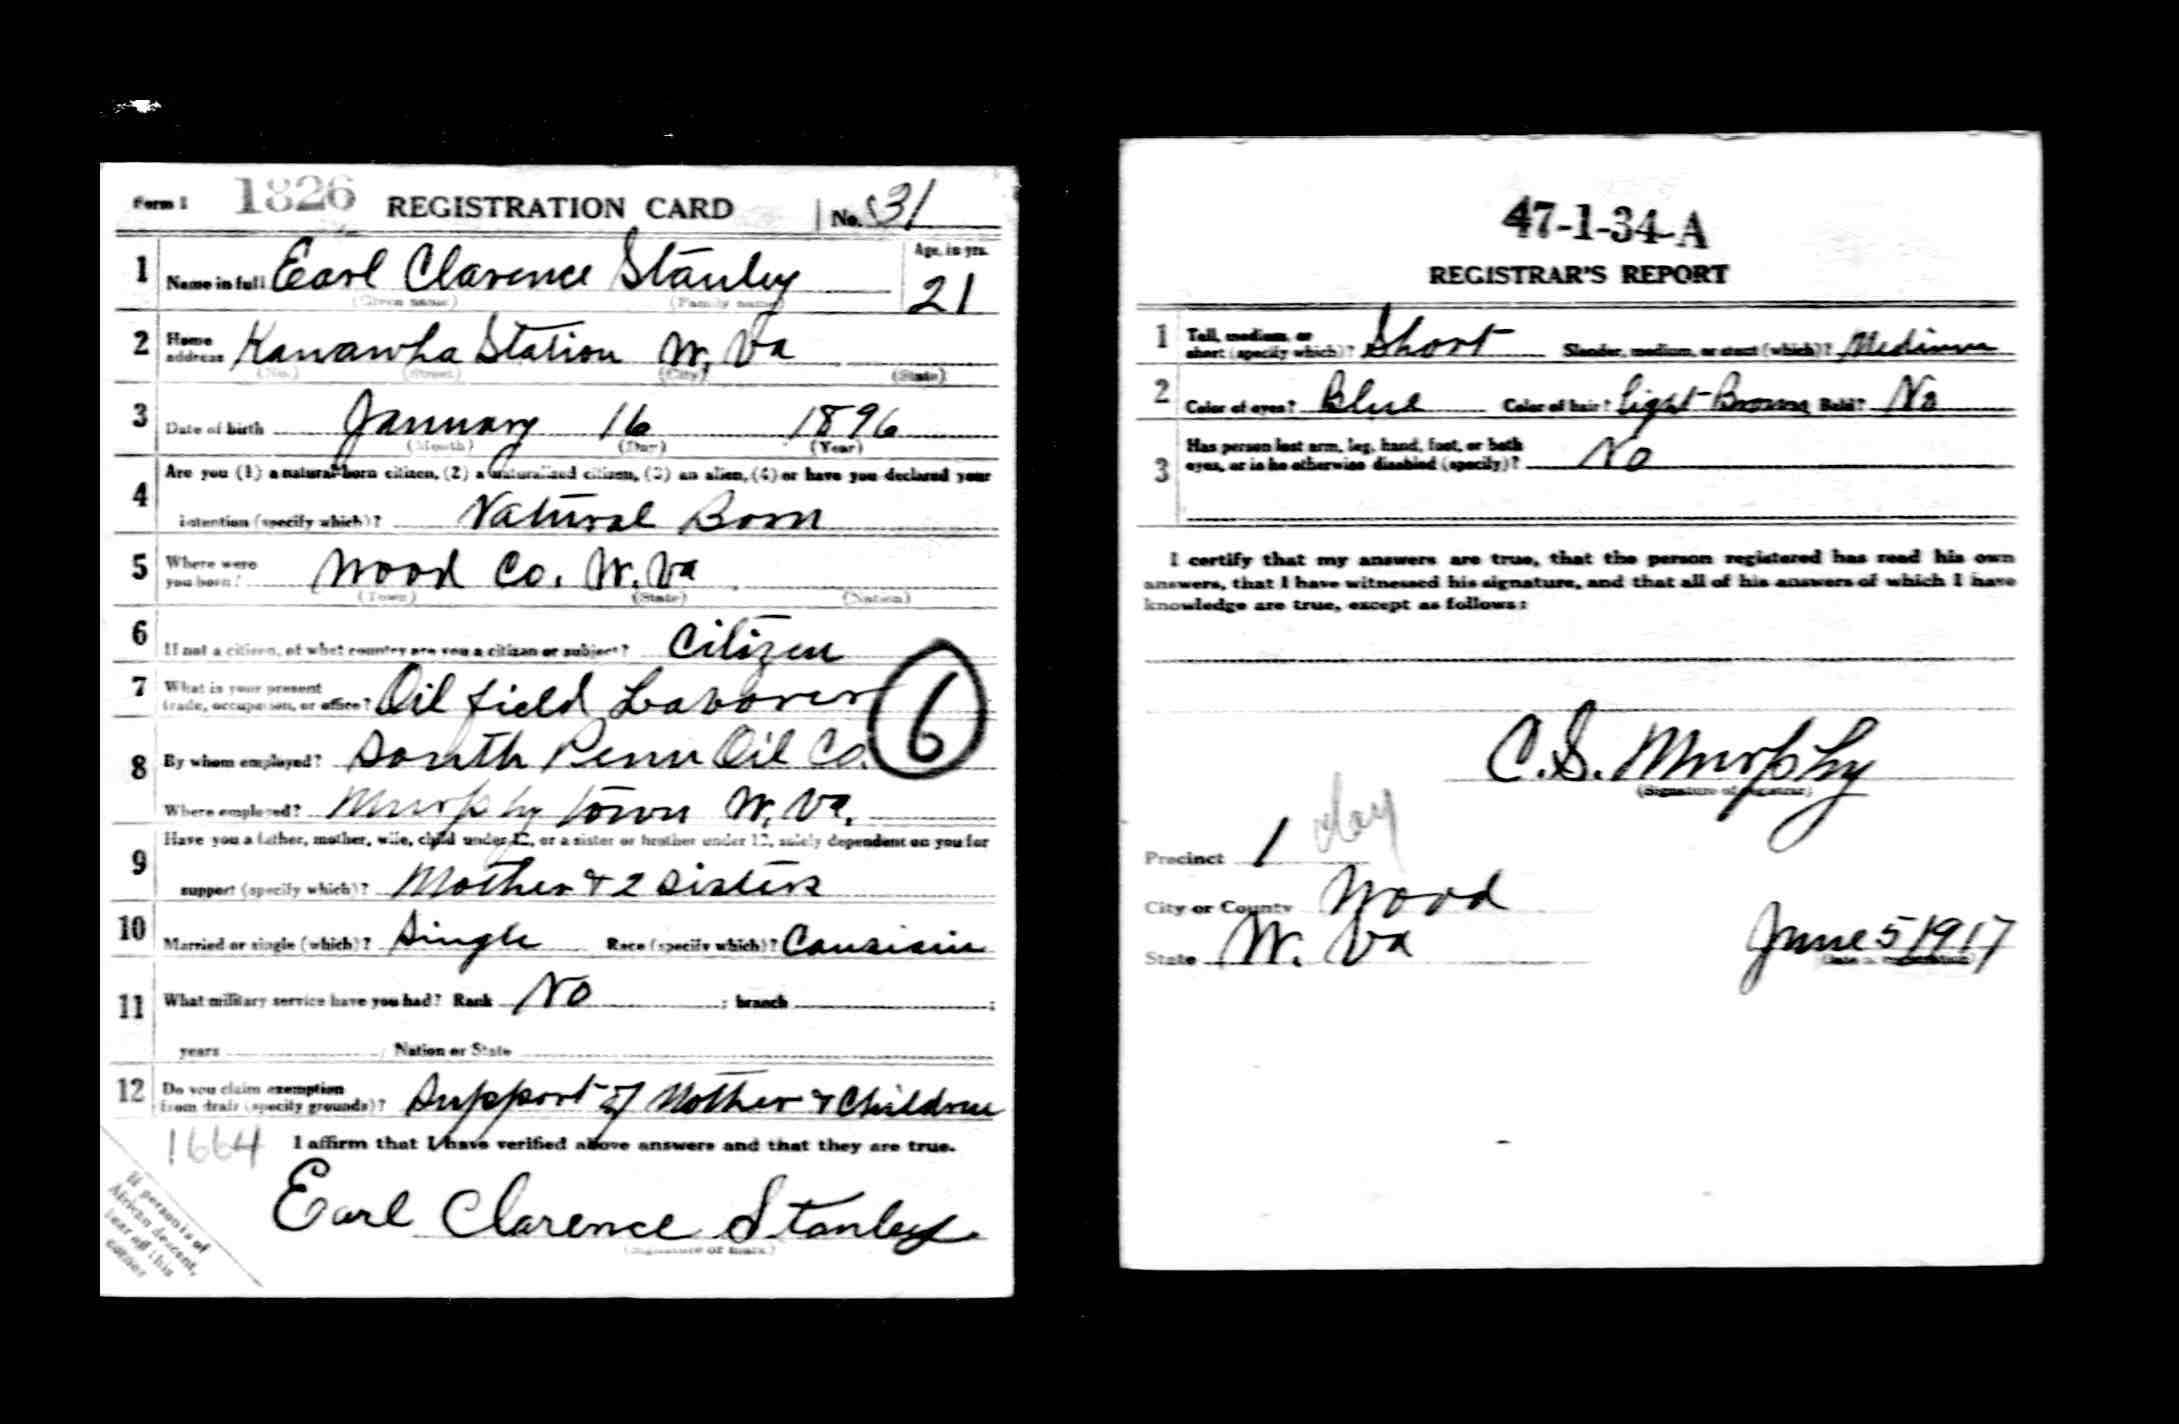 Form 1 1826 REGISTRATION CARD No. 31
1 Name in full Earl Clarence Stanley Age, in yrs.
(Given name) (Family name) 21
2 Home address Kanawha Station W. Va
(No.) (Street) (City) (State)
3 Date of birth January 16 1896
(Month) (Day) (Year)
4 Are you (1) a natural-born citizen, (2) a naturalized citizen, (3) an alien, (4) or have you declared your
intention (specify which)? Natural Born
5 Where were you born? Wood Co. W. Va
(Town) (State) (Nation)
6 If not a citizen, of what country are you a citizen or subject? Citizen
7 What is your present trade, occupation, or office? Oil field Laborer
8 By whom employed? South Penn Oil Co. 6
Where employed? Murphytown W. Va.
9 Have you a father, mother, wife, child under 12, or a sister or brother under 12, solely dependent on you for
support (specify which)? Mother & 2 sisters
10 Married or single (which)? Single Race (specify which)?
11 What military service have you had? Rank No ; branch ;
years ; Nation or State
12 Do you claim exemption from draft (specify grounds)? Support of Mother & Children
1664 I affirm that I have verified above answers and that they are true.
Earl Clarence Stanley
(Signature or mark)
If person is of
African descent,
tear off this
corner
47-1-34-A
REGISTRAR'S REPORT
1 Tall, medium, or short (specify which)? Short Slender, medium, or stout (which)? Medium
2 Color of eyes? Blue Color of hair? Light Brown Bald? No
3 Has person lost arm, leg, hand, foot, or both
eyes, or is he otherwise disabled (specify)? No
I certify that my answers are true, that the person registered has read his own
answers, that I have witnessed his signature, and that all of his answers of which I have
knowledge are true, except as follows:
C. S. Murphy
(Signature of registrar)
Precinct 1 Clay
City or County Wood
State W. Va June 5 1917
(Date of registration)